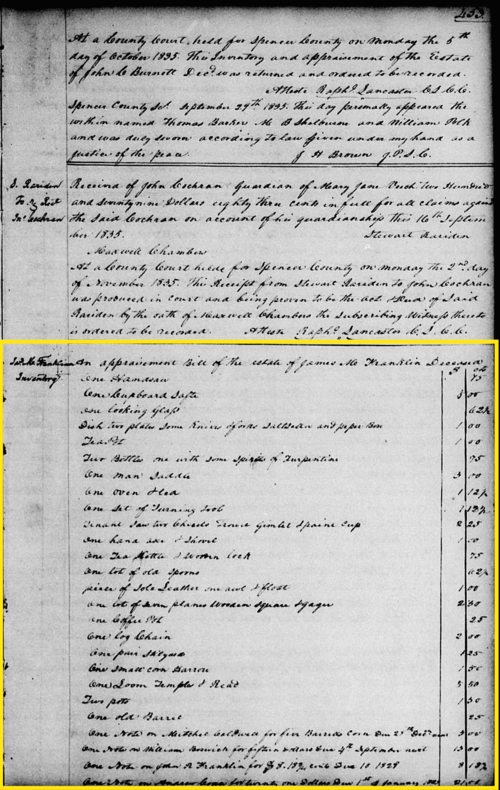 453
At a County Court held for Spencer County on Monday the 5th
day of October 1835. This Inventory and appraisement of the Estate
of John C Burnett Decd was returned and ordered to be recorded.
Attest Raphl Lancaster C.S.C.C.
Spencer County Sct. September 29th 1835. This day personally appeared the
within named Thomas Barker M B Shelburn and William Polk
and was duly sworn according to law given under my hand as a
Justice of the peace J H Brown J.P.S.C.
S. Rariden
To Rect
Jno Cochran
Received of John Cochran Guardian of Mary Jane Veech two Hundred
and Seventy nine Dollars eighty three cents in full for all claims against
the Said Cochran on account of his guardianship this 16th Septem
ber 1835. Stewart Rariden
Maxwell Chambers
At a County Court held for Spencer County on monday the 2nd day
of November 1835. This Receipt from Stewart Rariden to John Cochran
was produced in court and being proven to be the act &deed of Said
Rariden by the oath of Maxwell Chambers the Subscribing Witness thereto
is ordered to be recorded. Attest Raphl Lancaster C.S.C.C.
Jas Mc Franklin
Inventory
An appraisement Bill of the estate of James Mc Franklin Deceased
One Handsaw 75
One Cupboard Safe 3 00
one looking Glass 62½
Dish two plates Some Knives &forks and peper Box 1 00
Tea Pot 1 00
Two Bottles one with some Spirits of Turpentine 75
One man Saddle 3 00
One oven & lead 1 12½
One Set of Turning Tools
Tenant Saw two Chisels Gimlet 2 25
One hand axe & Shovel 1 00
One Tea Kettle & Wooden Cock 75
One lot of old Spoons 62½
piece of Sole Leather one awl & float 1 00
one lot of planes Wooden Square & Gages 2 50
one Coffee Pot 25
One log Chain 2 00
One pair 1 25
One Small corn Harrow 1 50
One Loom Temples & Read 5 50
Two pots 1 50
One old Barrel 25
One Note on Mitchel Caldwell for five Barrels Corn Due 25th Decr 5 00
One Note on William for fifteen Dollars Due 4th September next 15 00
One Note on John R Franklin for $8.18¾ Due 10 1828 8 18¾
One Note on Andrew for twenty one Dollars Due 1st of January 21 00